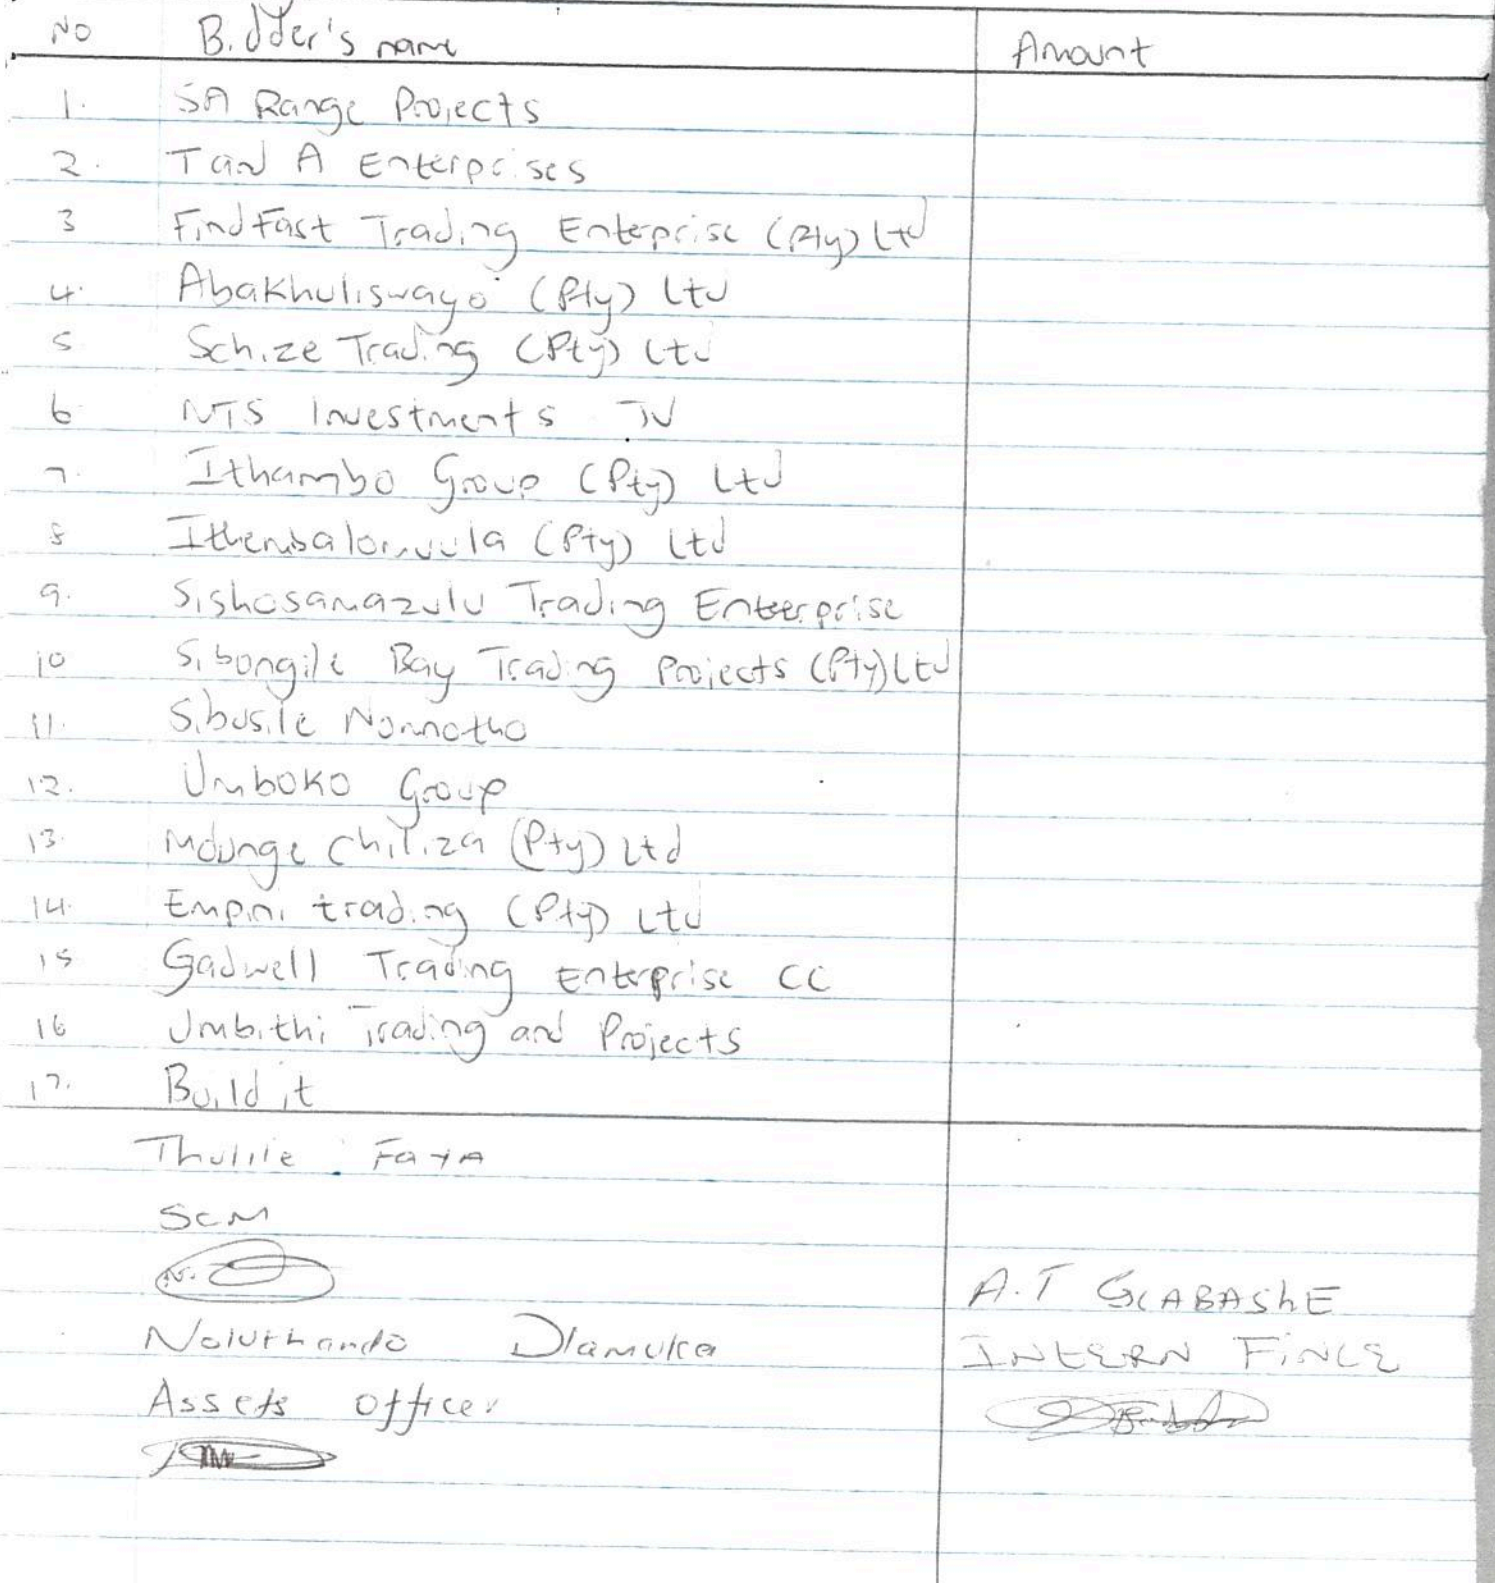 No Bidder's name Amount
1. SA Range Projects
2. T and A Enterprises
3 Find Fast Trading Enterprise (Pty) Ltd
4. Abakhuliswayo (Pty) Ltd
5 Schize Trading (Pty) Ltd
6 NTS Investments JV
7. Ithambo Group (Pty) Ltd
8 (Pty) Ltd
9. Sishosamazulu Trading Enterprise
10 Sibongile Bay Trading Projects (Pty) Ltd
11. Sibusile
12. Umboko Group
13. Mdunge Chiliza (Pty) Ltd
14. Empini trading (Pty) Ltd
15 Gadwell Trading Enterprise CC
16 Umbithi Trading and Projects
17. Build it
Thulile Faya
SCM
A.T GCABASHE
Noluthando Dlamuka
INTERN FINCE
Assets officer